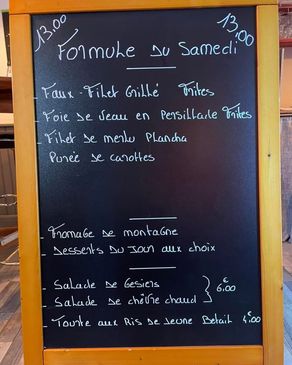 13.00
13.00
Formule du Samedi
- Faux-Filet Grillé Frites
- Foie de Veau en Persillade Frites
- Filet de merlu Plancha
Purée de carottes
- Fromage de montagne
- Desserts du Jour aux choix
- Salade de Gesiers
- Salade de chèvre chaud } 6.00 €
- Tourte aux Ris de Jeune Betail 4€00